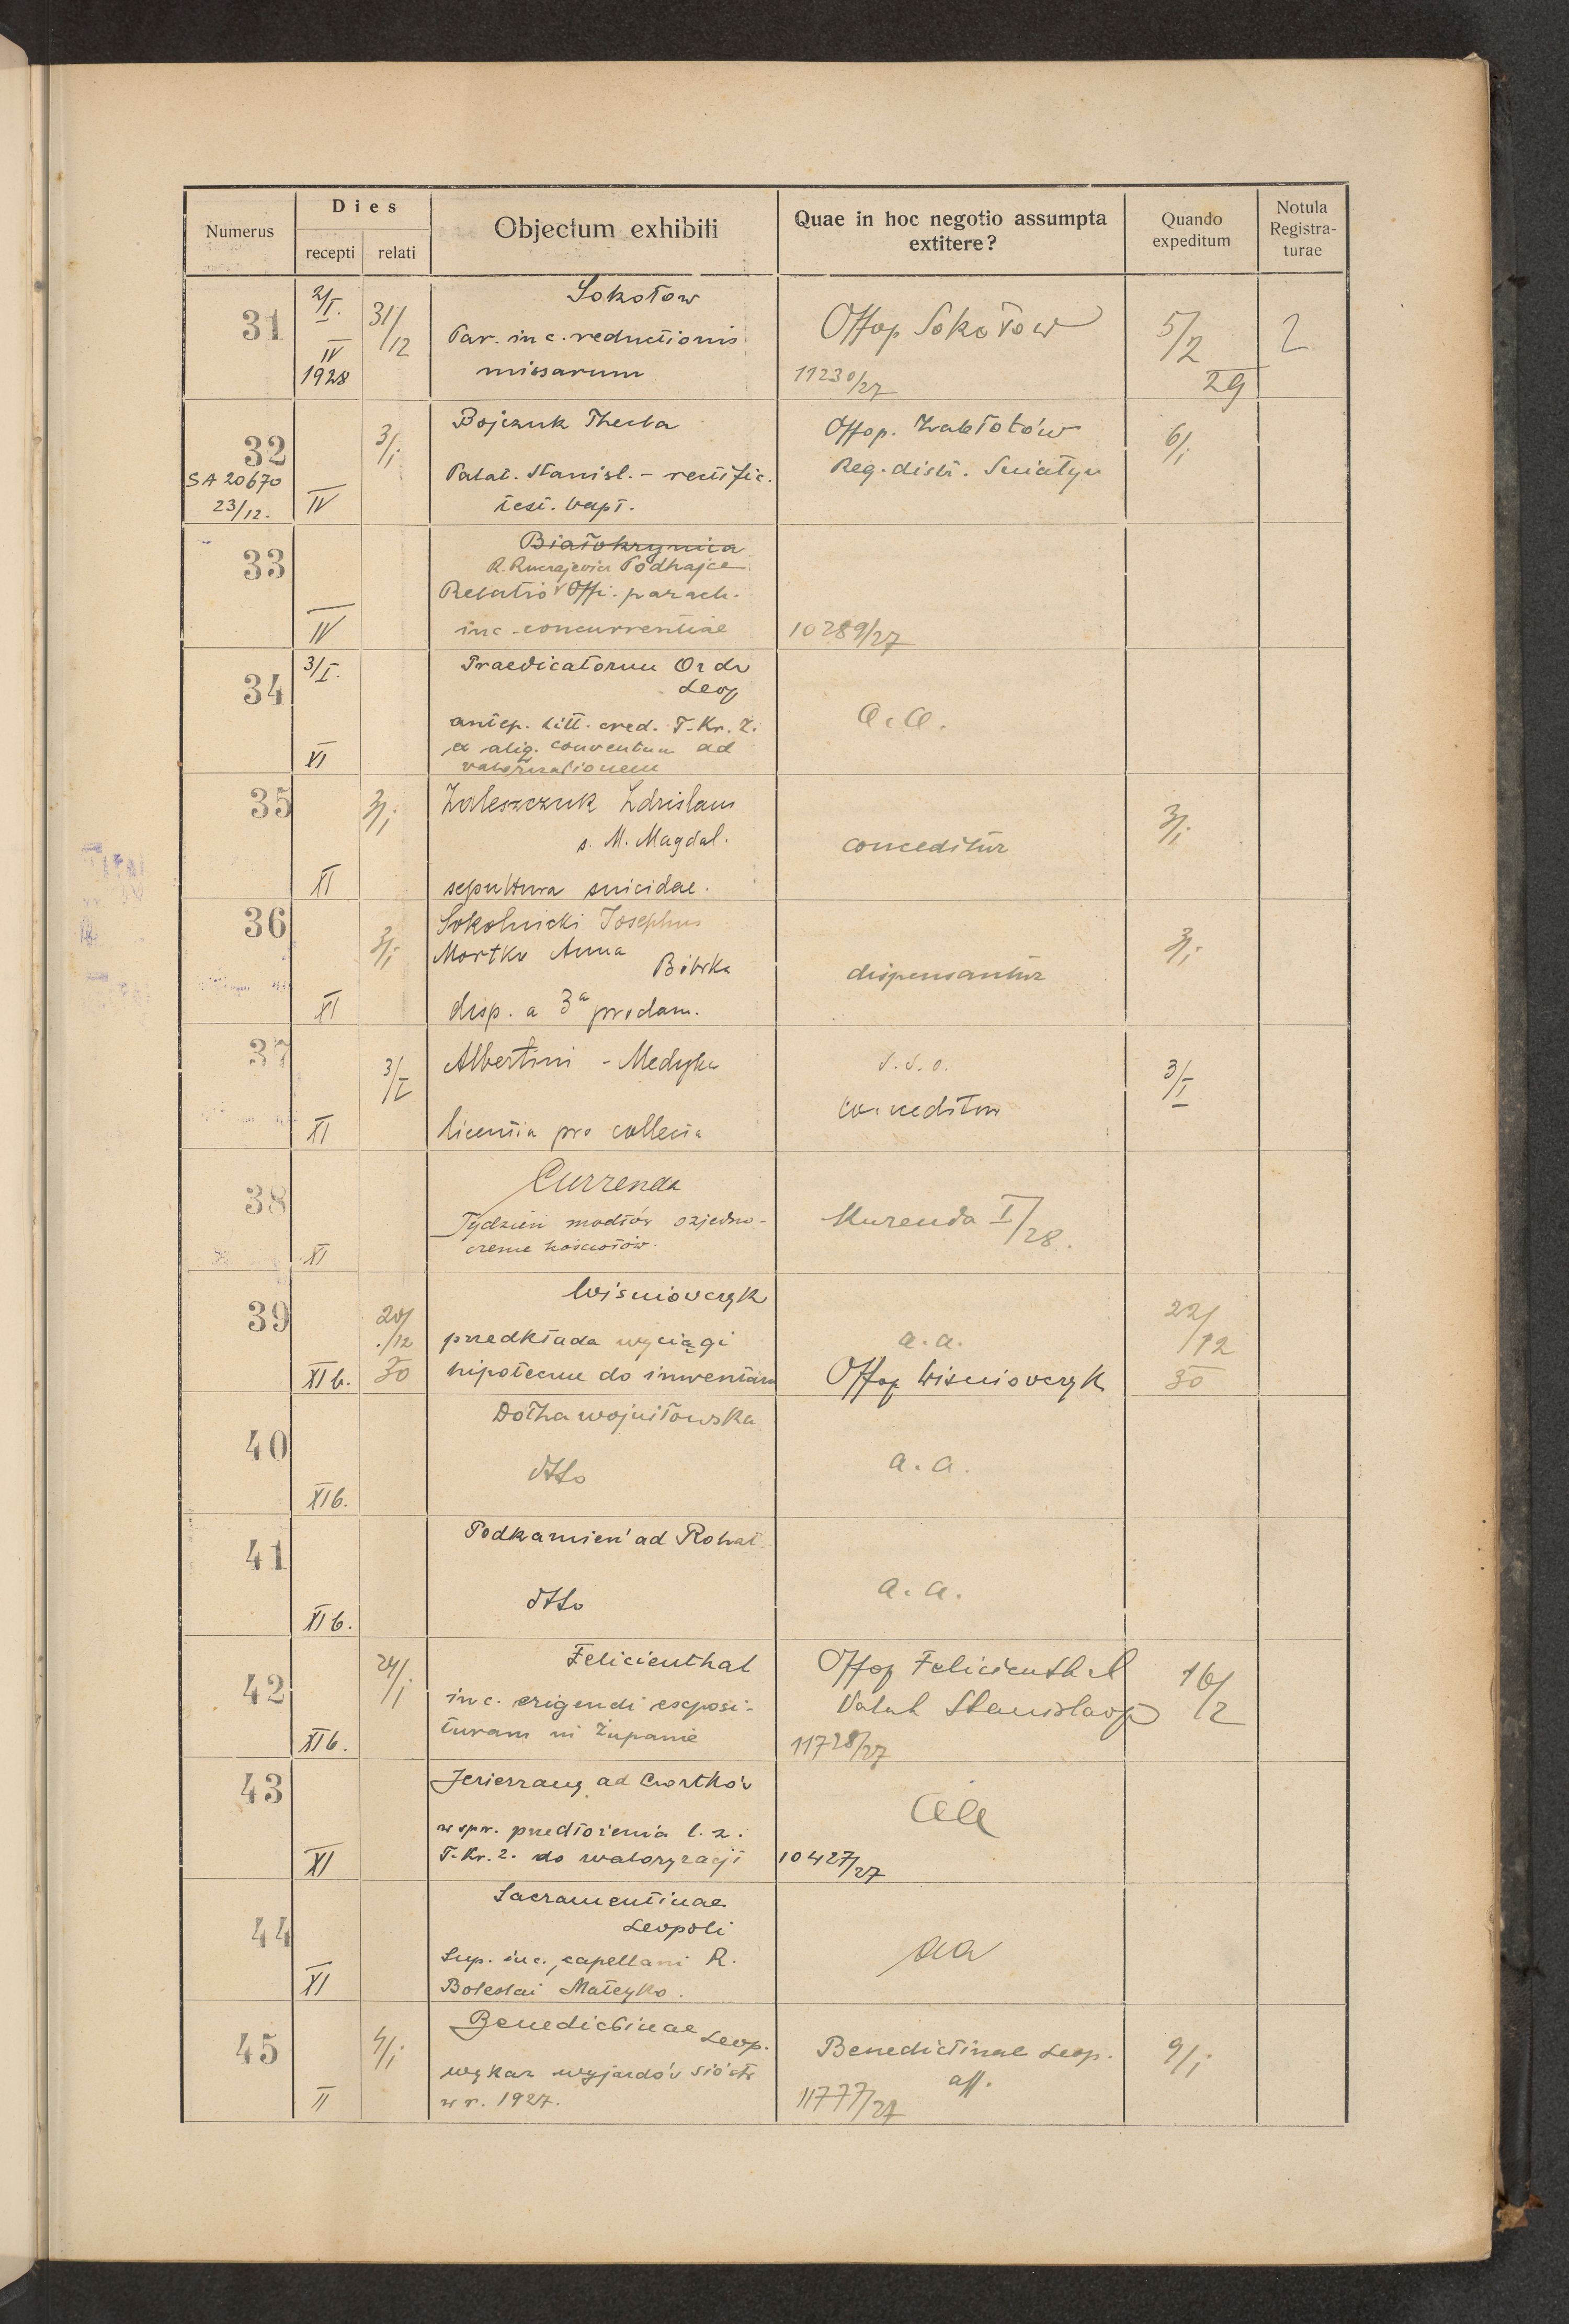 Numerus
Dies
recepti relati
Objectum exhibiti
Quae in hoc negotio assumpta
extitere?
Quando
expeditum
Notula
Registra-
turae
31
2/I.
IV
1928
31/12
Sokołow
Par. in c. reductionis
missarum
Offop Sokołow
11230/27
5/2
29
2
32
SA 20670
23/12.
IV
3/i
Bojczuk Thecla
Palat. Stanisl. - rectific.
test. bapt.
Offop. Zabłotów
Reg. distr. Sniatyn
6/i
33
IV
Białokrynica
Podhajce
Relatio Offi. paroch.
inc. concurrentiae
10289/27
34
3/I.
XI
Praedicatorum Ord
Leop
antep. litt. cred. T. Kr. Z.
ex aliq. conventum ad
valorisationem
a. a.
35
XI
3/i
Zaleszczuk Zdzislaus
s. M. Magdal.
sepultura suicidae.
conceditur
3/i
36
XI
3/i
Sokolnicki Josephus
Mortka Anna
Bóbrka
disp. a 3a proclam.
dispensantur
3/i
37
XI
3/I
Albertini - Medyka
licentia pro collecta
conceditur
3/I
38
XI
Currenda
Tydzień modłów o zjedno-
czenie kościołów.
Kurenda I/28.
39
XI b.
20/12
30
Wisniowczyk
przedkłada wyciągi
hipoteczne do inwentarza
a.a.
Offop Wisniowczyk
22/12
30
40
XI b.
Dołha wojniłowska
dtto
a.a.
41
XI b.
Podkamień ad Rohat.
dtto
a.a.
42
XI b.
24/i
Felicienthal
in c. erigendi exposi-
turam in Żupanie
Offop Felicienthal
Palat Stanislaop
11728/27
16/2
43
XI
Jezierzany ad Czortków
w spr. przedłożenia l. z.
T. Kr. Z. do waloryzacji
aa
10427/27
44
XI
Sacramentinae
Leopoli
Sup. inc. capellani R.
Boleslai Mateyko.
aa
45
II
4/i
Benedictinae Leop.
wykaz wyjazdów sióstr
w r. 1927.
Benedictinae Leop.
aff.
11777/27
9/i